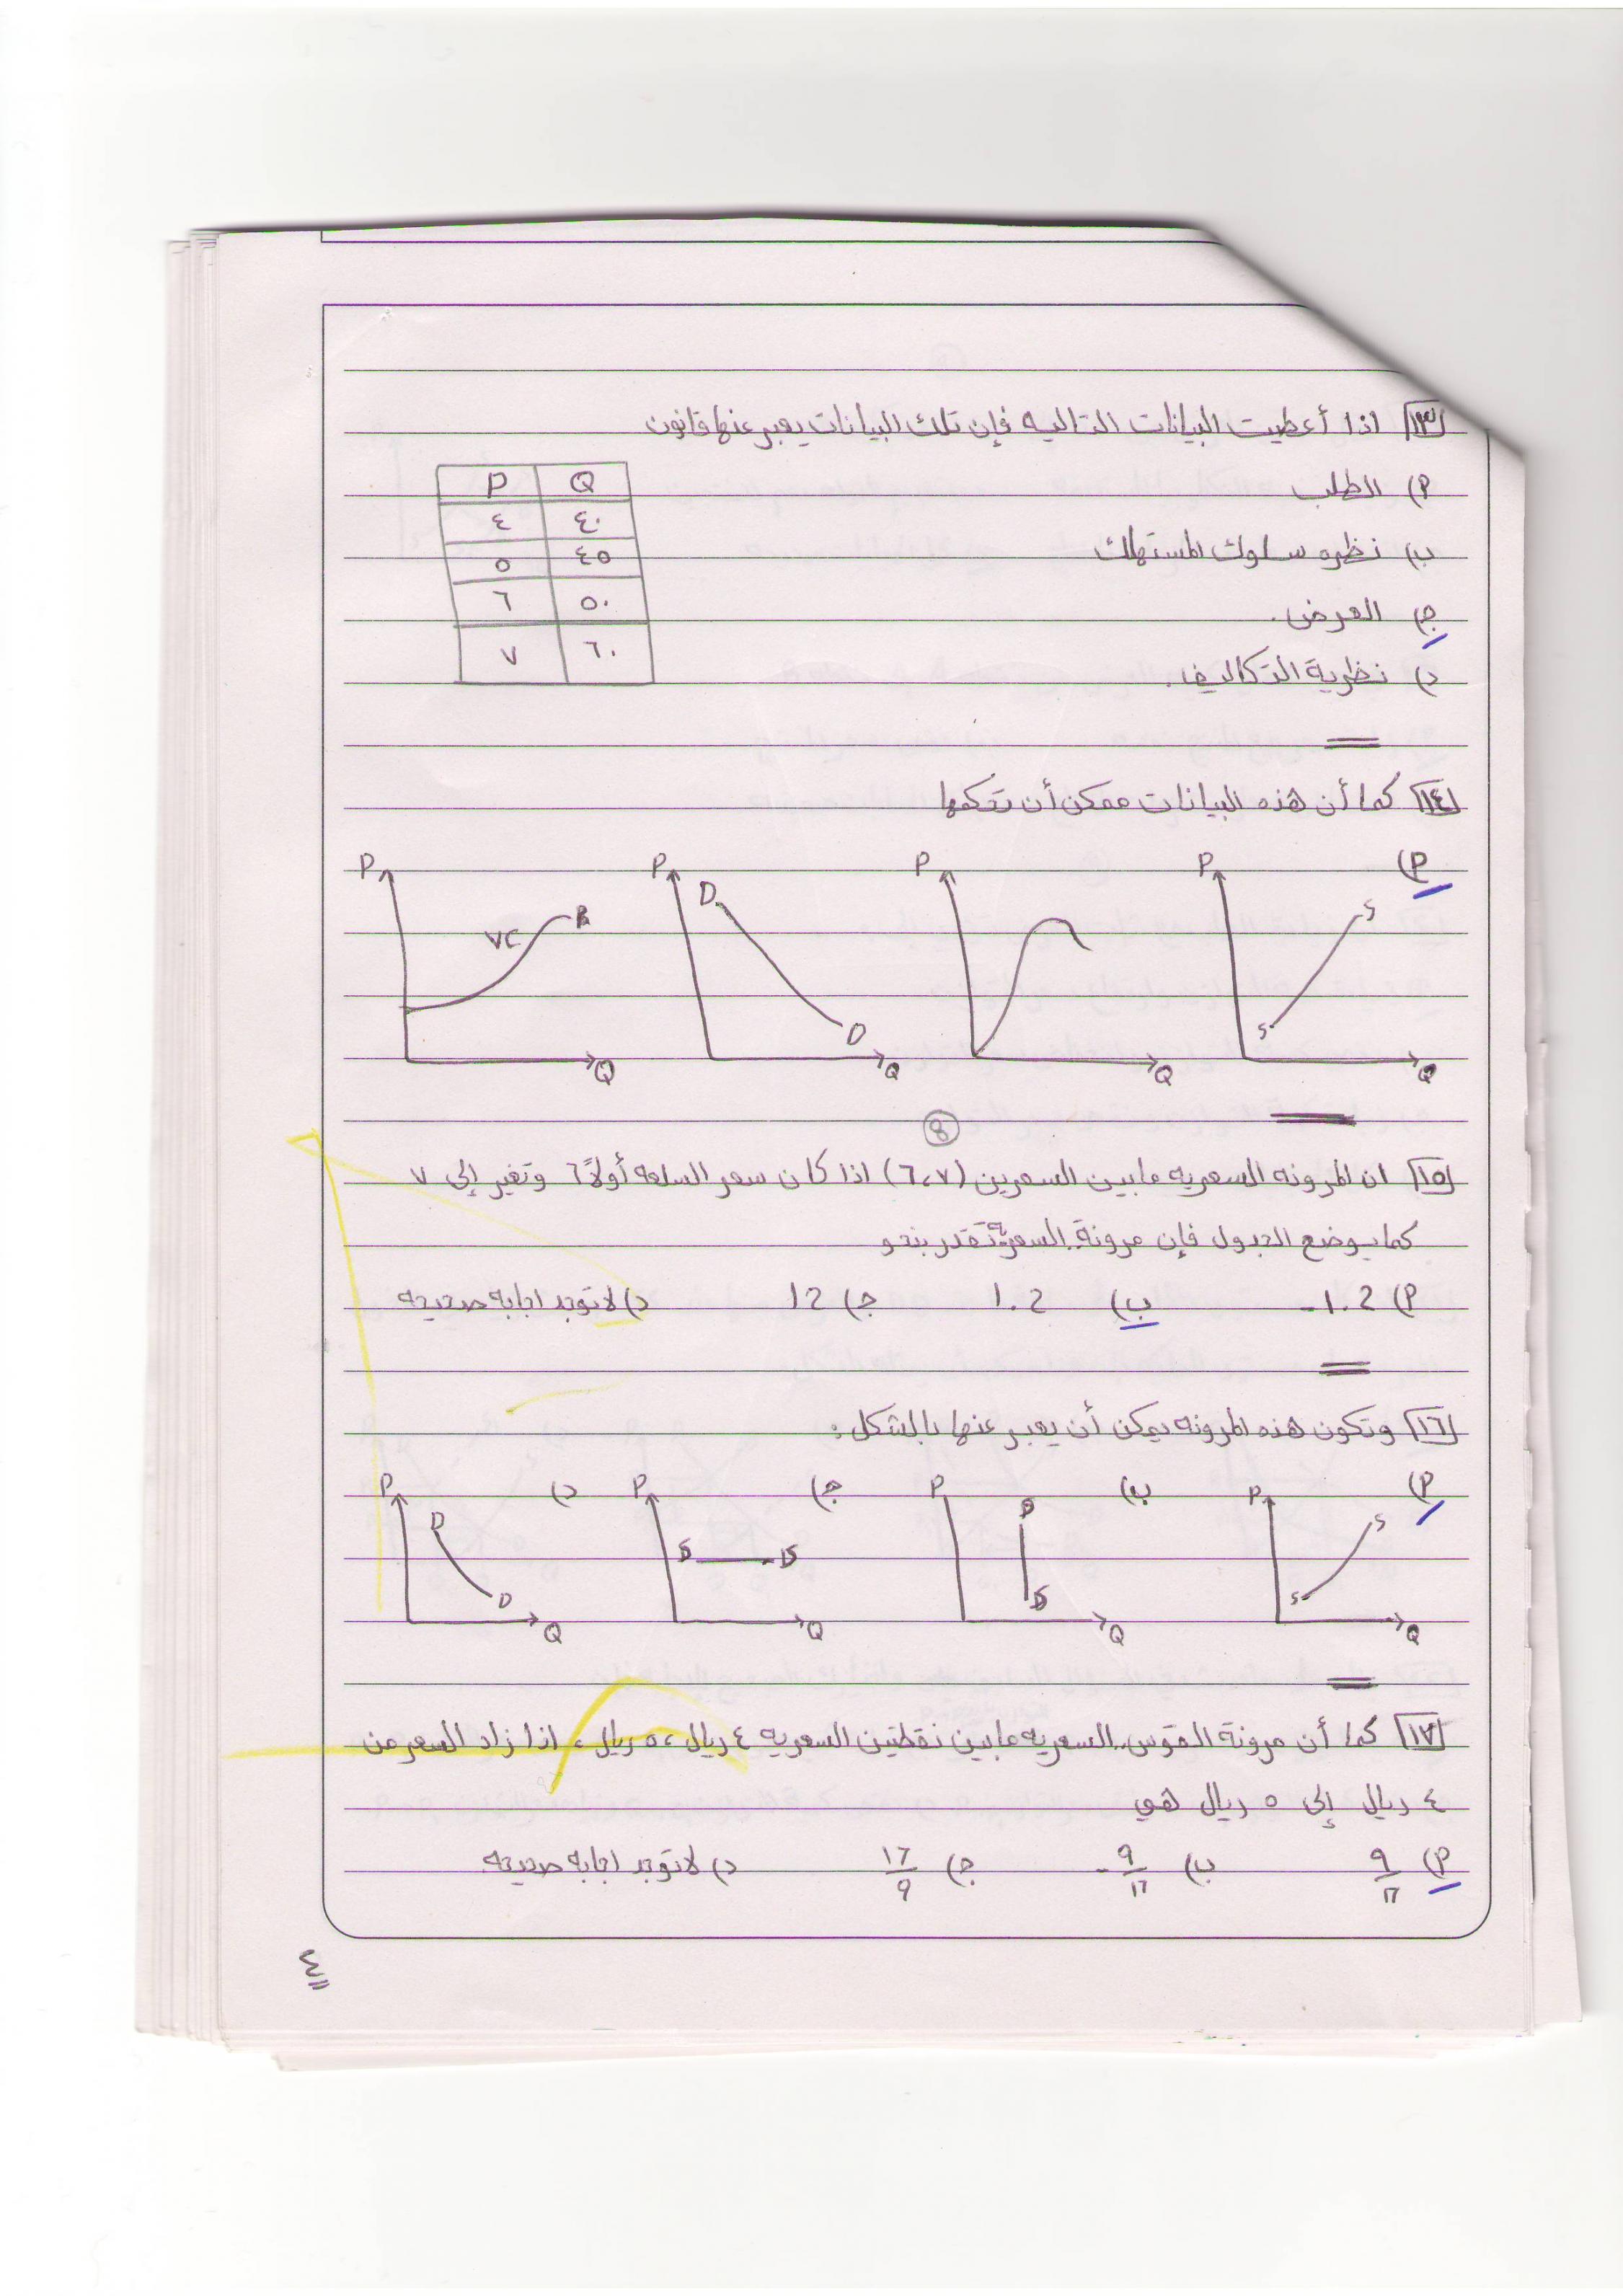 ١٣ اذا أعطيت البيانات التاليه فإن تلك البيانات يعبر عنها قانون
P Q
٤ ٤٠
٥ ٤٥
٦ ٥٠
٧ ٦٠
أ) الطلب
ب) نظره سلوك المستهلك
ج) العرض.
د) نظرية التكاليف.
١٤ كما أن هذه البيانات ممكن أن تعكسها
أ)
P S S Q
P Q
P D D Q
P VC Q
8
١٥ ان المرونه السعريه مابين السعرين (٦،٧) اذا كان سعر السلعه أولاً ٦ وتغير إلى ٧
كما يوضح الجدول فإن مرونة السعرية تقدر بنحو
أ) 1.2- ب) 1.2 ج) 12 د) لاتوجد اجابه صحيحه
١٦ وتكون هذه المرونه يمكن أن يعبر عنها بالشكل:
أ) ب) ج) د)
P S S Q
P Q
P Q
P D D Q
١٧ كما أن مرونة القوس السعريه مابين نقطتين السعريه ٤ ريال، ٥ ريال، اذا زاد السعر من
٤ ريال إلى ٥ ريال هي
أ) ٩/١٧ ب) ٩/١٧- ج) ١٧/٩ د) لاتوجد اجابه صحيحه
٤